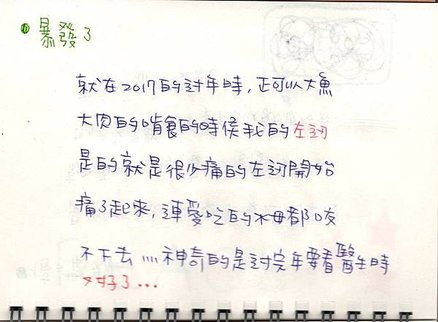 暴發了
就在2017的過年時,正可以大魚
大肉的啃食的時侯我的左邊
是的就是很少痛的左邊開始
痛了起來,連愛吃的水母都咬
不下去...神奇的是過完年要看醫生時
又好了...